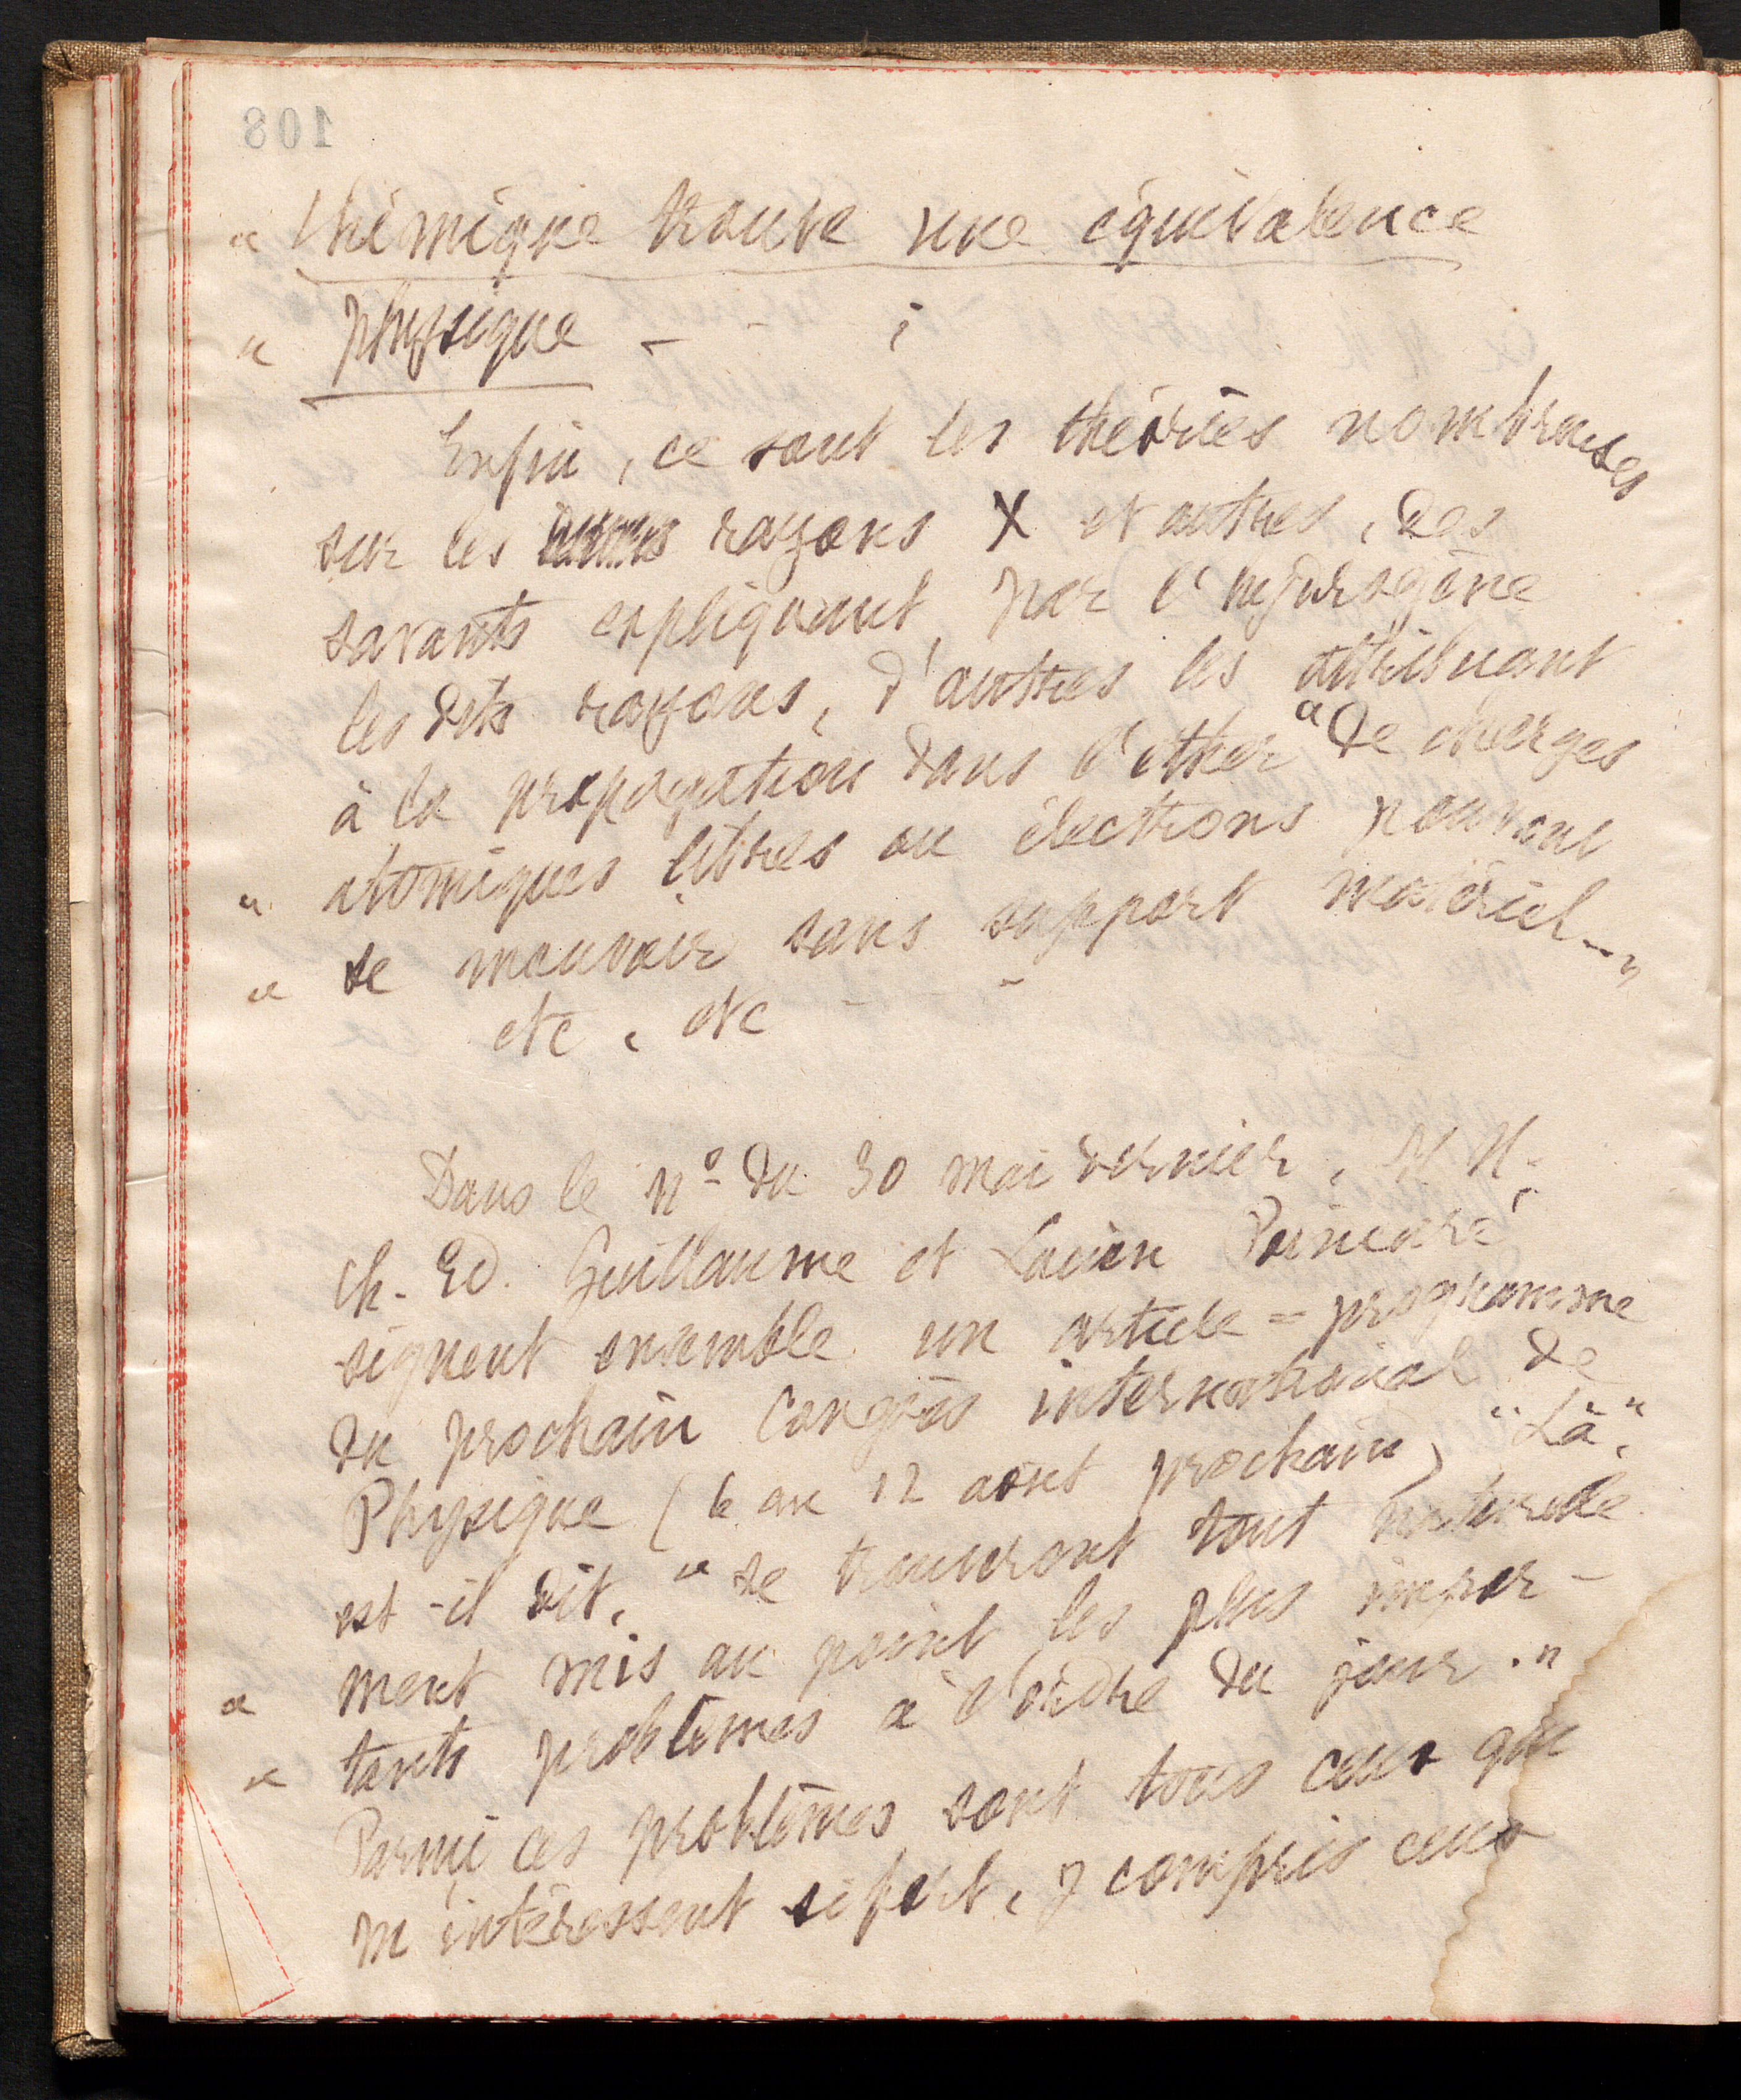 108
" chimique trouve une équivalence
" physique - - ;
Enfin, ce sont les théories nombreuses
sur les rayons X et autres, des
savants expliquant, par l'hydrogène
les dits rayons, d'autres les attribuant
à la propagation dans l'éther " de charges
" atomiques libres ou électrons pouvant
" se mouvoir sans support matériel -- "
etc, etc - - -
Dans le nº du 30 mai dernier, M M.
Ch. Ed. Guillaume et Lucien Poincaré
signent ensemble un article = programme
du prochain Congrès international de
Physique (6 au 12 août prochain) "Là",
est-il dit, " se trouveront tout naturelle
" ment mis au point les plus impor-
" tants problèmes à l'ordre du jour. "
Parmi ces problèmes sont tous ceux qui
m'intéressent si fort, y compris ceux